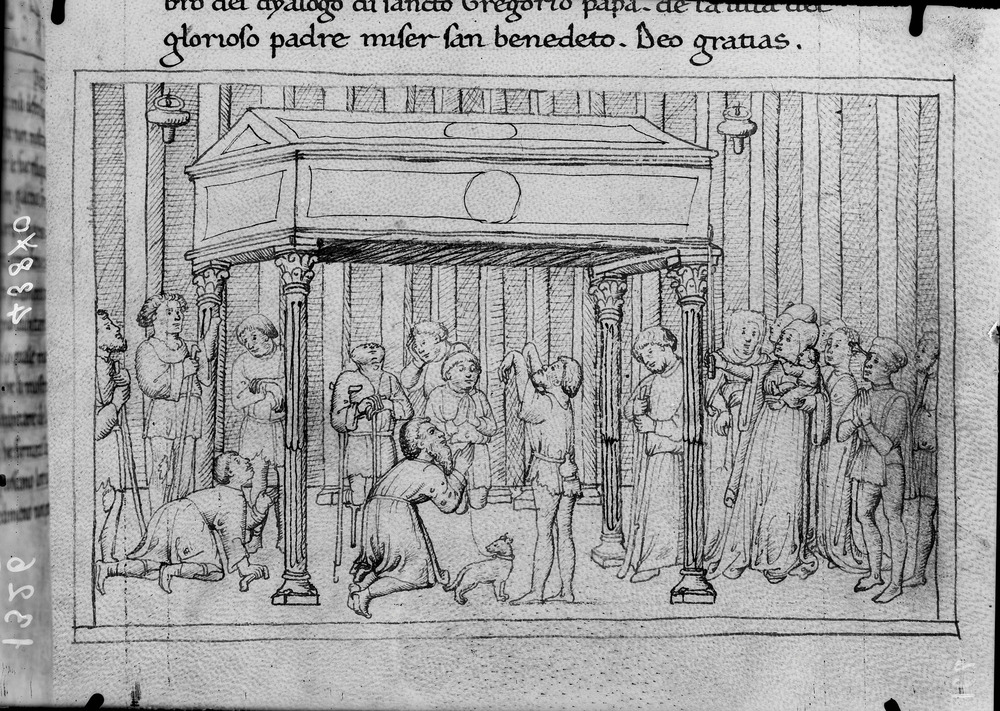 bro del dyalogo di sancto Gregorio papa. de la uita del
glorioso padre miser san benedeto. Deo gratias.
43840
1326